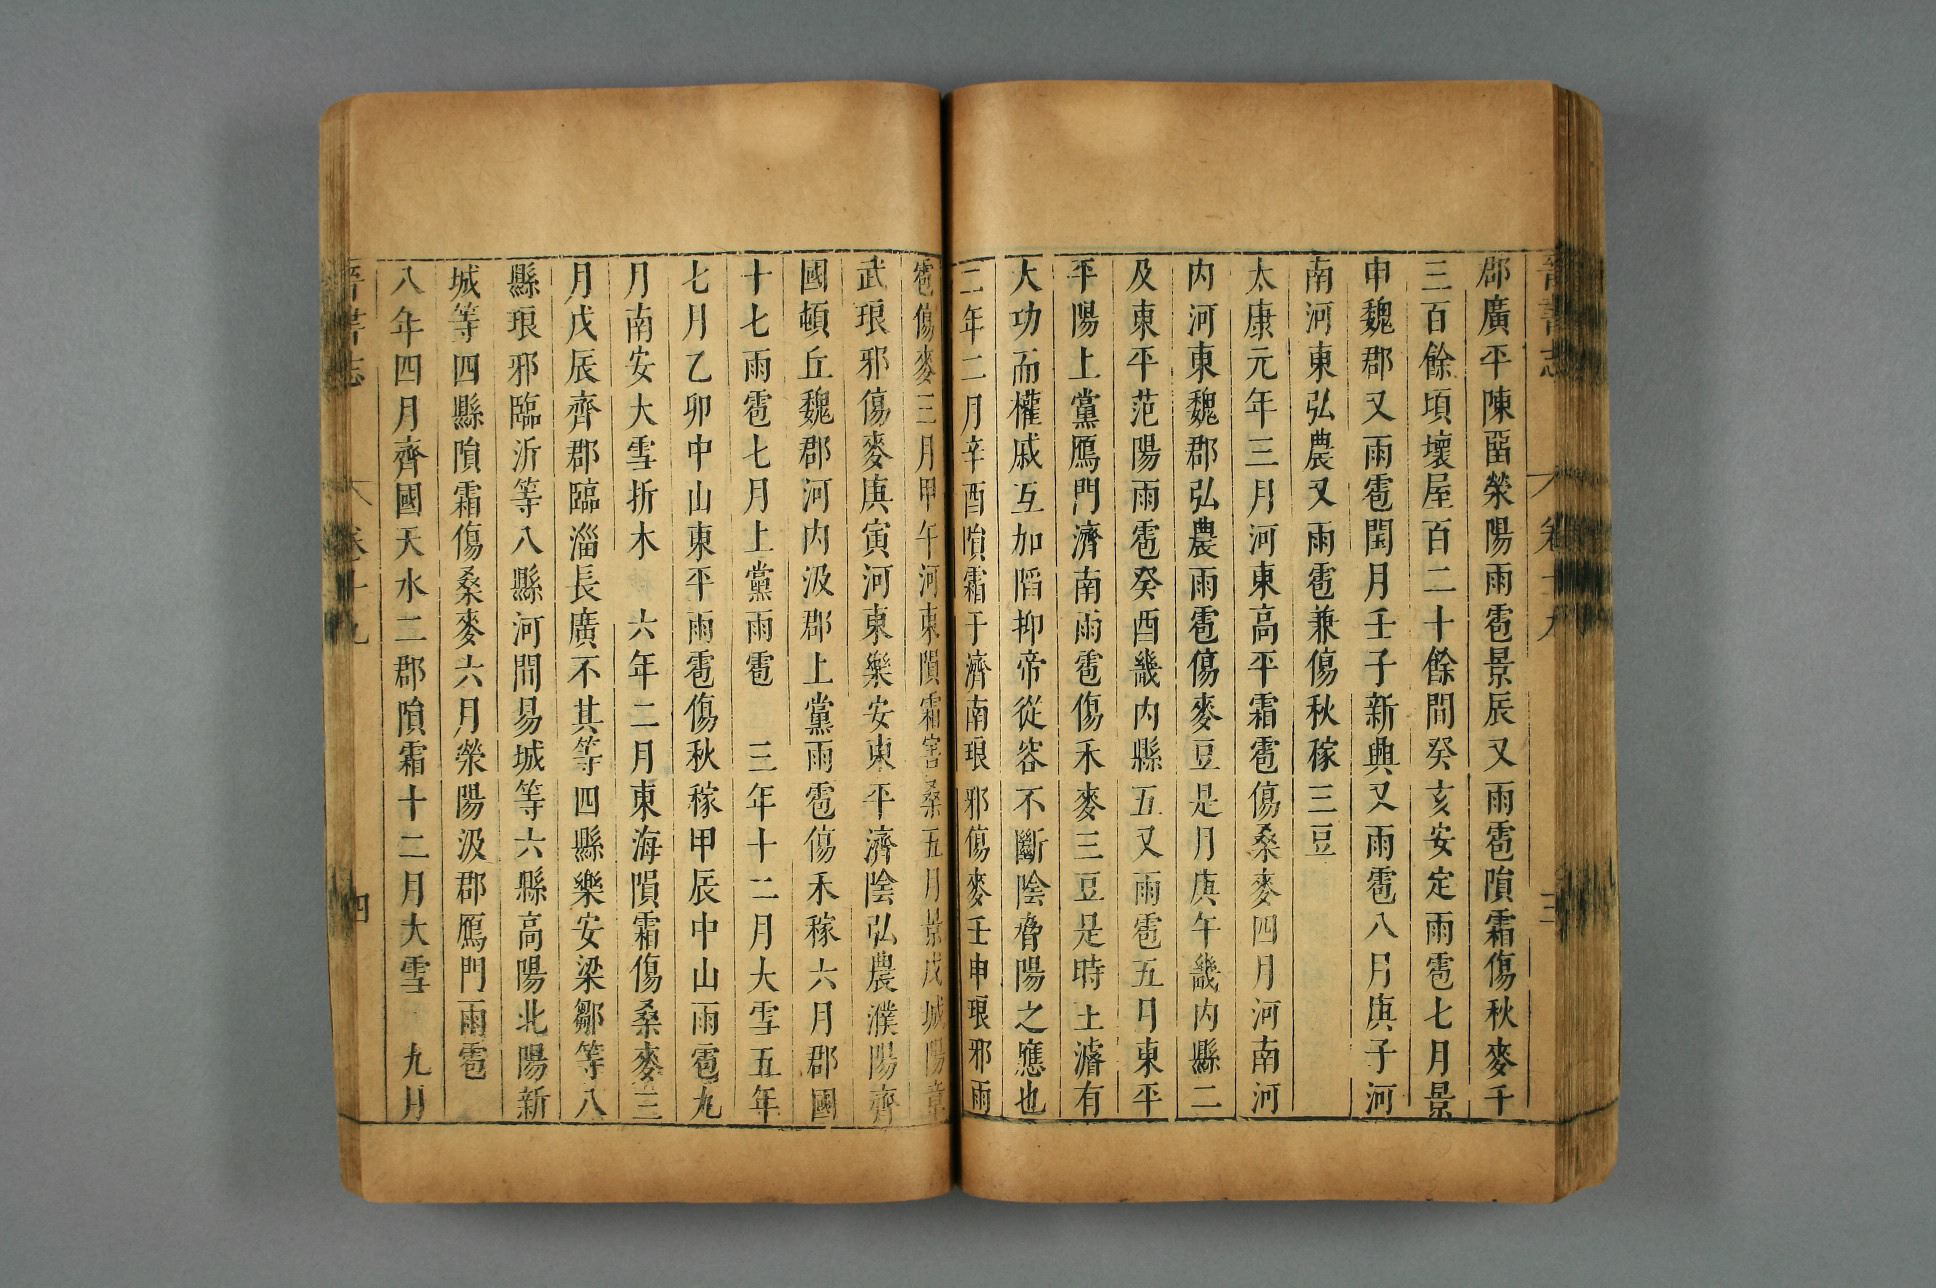 晉書志 卷十九 三
郡廣平陳留滎陽雨雹景辰又雨雹隕霜傷秋麥千
三百餘頃壞屋百二十餘間癸亥安定雨雹七月景
申魏郡又雨雹閏月壬子新興又雨雹八月庚子河
南河東弘農又雨雹兼傷秋稼三豆
太康元年三月河東高平霜雹傷桑麥四月河南河
內河東魏郡弘農雨雹傷麥豆是月庚午畿內縣二
及東平范陽雨雹癸酉畿內縣五又雨雹五月東平
平陽上黨鴈門濟南雨雹傷禾麥三豆是時王濬有
大功而權戚互加陷抑帝從容不斷陰脅陽之應也
二年二月辛酉隕霜于濟南琅邪傷麥壬申琅邪雨
雹傷麥三月甲午河東隕霜害桑五月景戌城陽章
武琅邪傷麥庚寅河東樂安東平濟陰弘農濮陽齊
國頓丘魏郡河內汲郡上黨雨雹傷禾稼六月郡國
十七雨雹七月上黨雨雹 三年十二月大雪五年
七月乙卯中山東平雨雹傷秋稼甲辰中山雨雹九
月南安大雪折木 六年二月東海隕霜傷桑麥三
月戊辰齊郡臨淄長廣不其等四縣樂安梁鄒等八
縣琅邪臨沂等八縣河間易城等六縣高陽北陽新
城等四縣隕霜傷桑麥六月滎陽汲郡鴈門雨雹
八年四月齊國天水二郡隕霜十二月大雪 九月
晉書志 卷十九 四